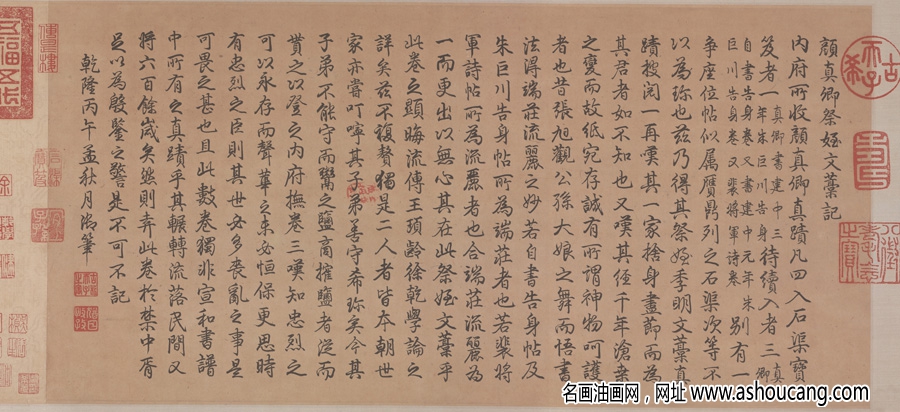 顔真卿祭姪文藁記
内府所收顔真卿真蹟凡四入石渠寶
笈者一真卿書建中三年朱巨川告身待續入者三真卿
自書告身卷又書建中元年朱
巨川告身卷又裴將軍詩卷別有一
争座位帖似属贋鼎列之石渠次等不
以為珎也兹乃得其祭姪季明文藁真
蹟披閲一再嘆其一家捨身盡節而為
其君者如不知也又嘆其徑千年滄桒
之變而故纸宛存誠有所謂神物呵護
者也昔張旭觀公孫大娘之舞而悟書
法淂瑞莊流麗之妙若自書告身帖及
朱巨川告身帖所為瑞莊者也若裴將
軍詩帖所為流麗者也合瑞莊流麗為
一而更出以無心其在此祭姪文藁乎
此卷之顕晦流傳王頊齡徐乹學論之
詳矣兹不復贅獨是二人者皆本朝世
家亦嘗叮嚀其子弟善守希珎矣今其
子弟不能守而鬻之鹽商搉鹽者従而
貰之以登之内府撫卷三嘆知忠烈之
可以永存而聲華之未必恒保更思時
有忠烈之臣則其世必多丧亂之事是
可畏之甚也且此數卷獨非宣和書譜
中所有之真蹟乎其輾轉流落民間又
將六百餘嵗矣然則弆此卷於禁中胥
足以為殷鑒之警是不可不記
乾隆丙午孟秋月御筆
古希天子
八徵耄念之寶
五福五代
名画油画网，网址 www.ashoucang.com